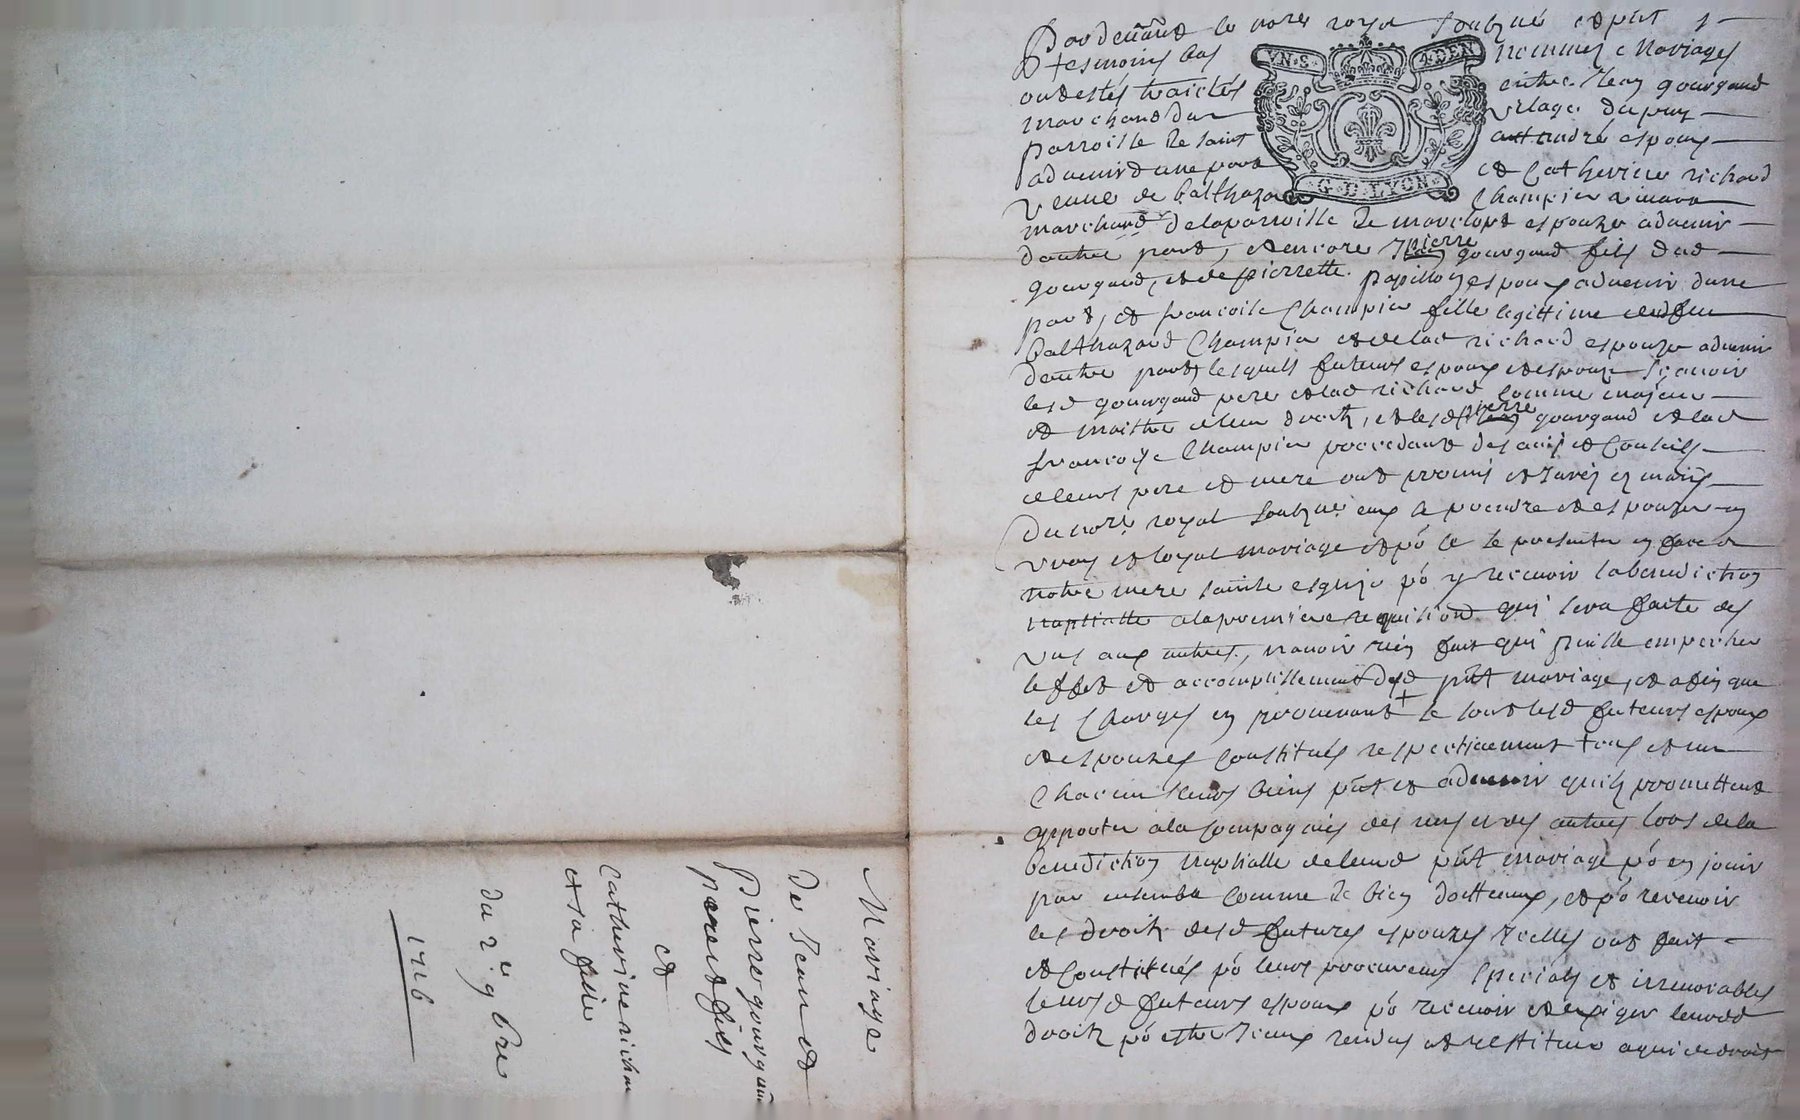 Pardevant le notre royal soubzné et pnt s
tesmoins bas nommez Mariages
ont estés traictés entre Jean gourgaud
marchand du vilage du puy
parroisse de saint andré espoux
advenir d'une part et Catherine richard
veuve de balthazard Champin vivant
marchand de la parroisse de marclopt espouze advenir
dautre part, et encore pierre gourgaud fils dud
gourgaud, et de pierrette papillon espoux advenir dune
part, et francoise Champin fille legittime dud feu
balthazard Champin et de lad richard espouze advenir
dautre part lesquels futeurs espoux et espouze scavoir
led gourgaud pere et lad richard comme majeur
et maitre de leur droits, et led pierre gourgaud et lad
francoise Champin proceedant des avis et Conseils
de leurs pere et mere ont promis et jurés es mains
du notre royal soubzné eux se prendre et espouzer en
vray et loyal mariage et po ce se presenter en face de
notre mere sainte esglize po y recevoir la benediction
nuptialle a la premiere requisition qui sera faite des
uns aux autres, navoir rien fait qui puisse empecher
leffet et accomplissement dud pnt mariage, et afin que
les Charges en provenant + se sont lesd futeurs espoux
et espouzes Constitués respectivement tous et un
Chacun leurs biens pnt et advenir quils promettent
apporter a la Compagnies des uns et des autres lors de la
benediction nuptialle de leurd pnt mariage po en jouir
par ensemble Comme de bien dottaux, et po recevoir
les droits desd futures espouzes Icelles ont fait
et Constitués po leurs procureurs specials et irrevocables
leursd futeurs espoux po recevoir et exiger leursd
droits po estre Iceux rendus et restitues a qui de droit
VN·S· 4·DEN
·G·D·LYON·
Mariage
De Jean et
Pierre gourgaud
pere et fils
et
Catherine richard
et sa fille
du 2e 9bre
1716